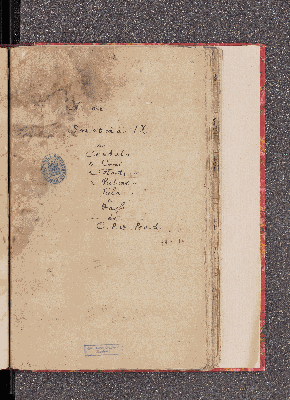 Sonatina IX
a
Cembalo
2 Corni
2 Flauti
2 Violini
Viola
e
Basso
di
C. P. E. Bach.